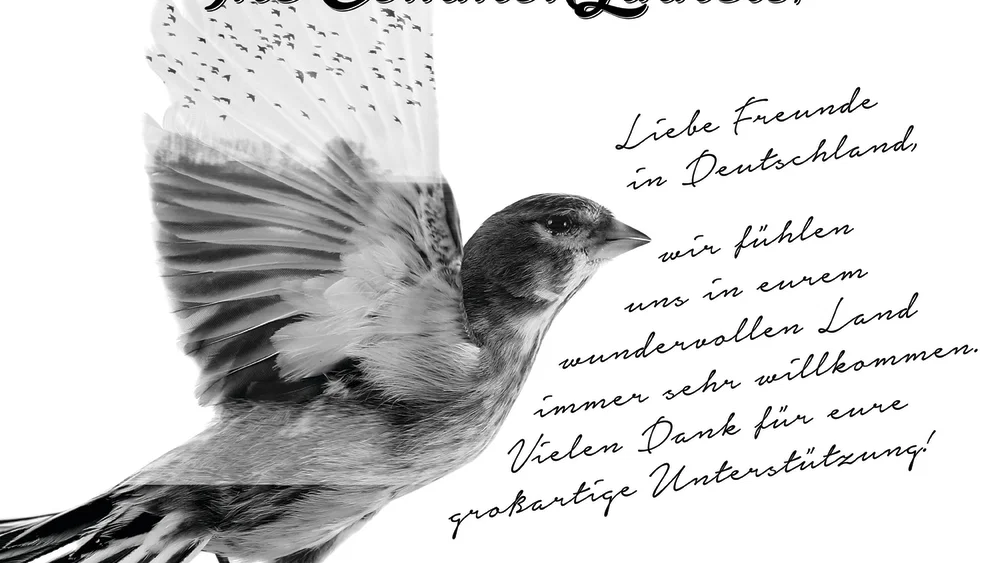 The Common Linnets!
Liebe Freunde
in Deutschland,
wir fühlen
uns in eurem
wundervollen Land
immer sehr willkommen.
Vielen Dank für eure
großartige Unterstützung!